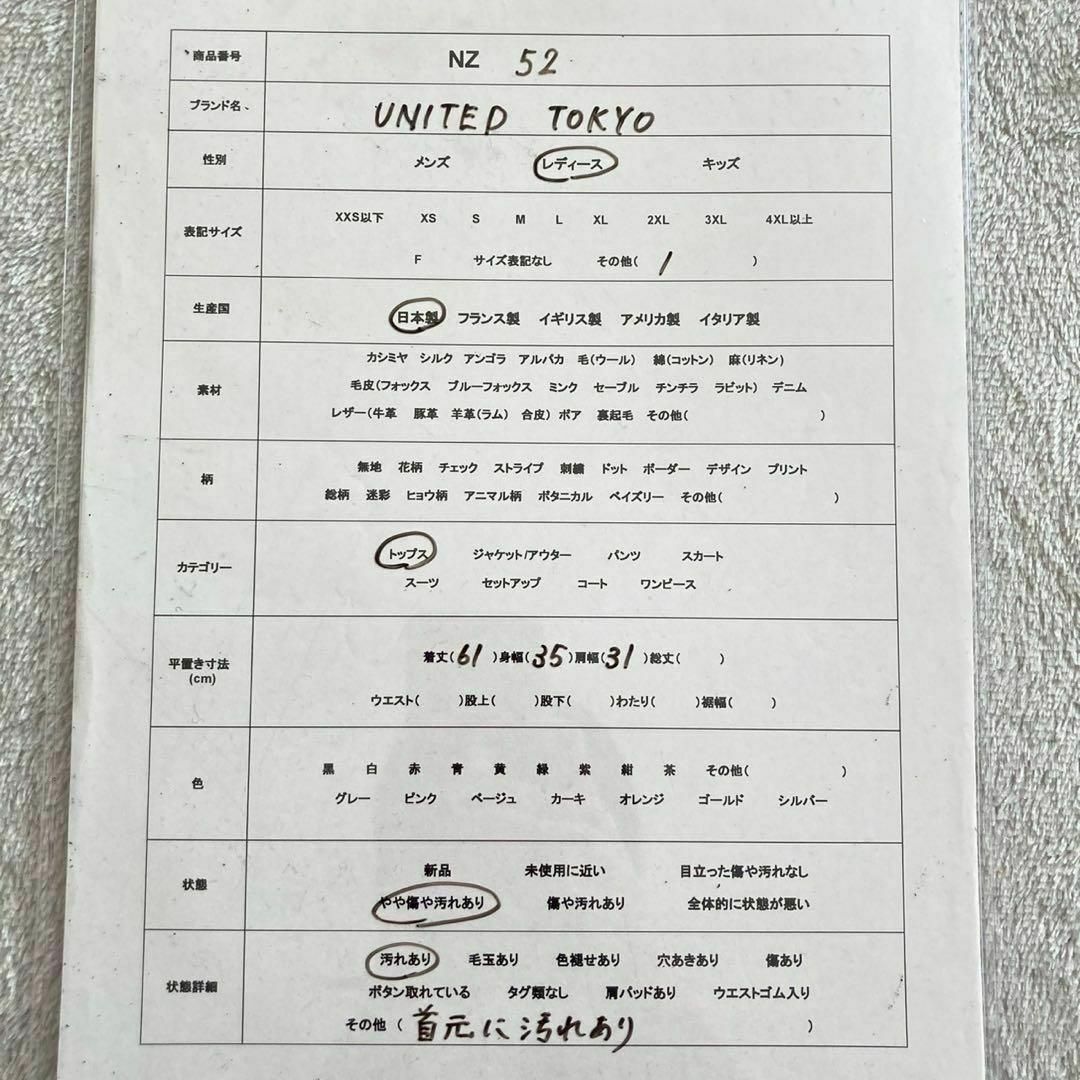 商品番号 NZ 52
ブランド名 UNITED TOKYO
性別 メンズ レディース キッズ
XXS以下 XS S M L XL 2XL 3XL 4XL以上
表記サイズ
F サイズ表記なし その他( 1 )
生産国 日本製 フランス製 イギリス製 アメリカ製 イタリア製
カシミヤ シルク アンゴラ アルパカ 毛(ウール) 綿(コットン) 麻(リネン)
素材 毛皮(フォックス ブルーフォックス ミンク セーブル チンチラ ラビット) デニム
レザー(牛革 豚革 羊革(ラム) 合皮) ボア 裏起毛 その他( )
無地 花柄 チェック ストライプ 刺繍 ドット ボーダー デザイン プリント
柄
総柄 迷彩 ヒョウ柄 アニマル柄 ボタニカル ペイズリー その他( )
トップス ジャケット/アウター パンツ スカート
カテゴリー
スーツ セットアップ コート ワンピース
着丈(61 )身幅(35)肩幅(31 )総丈( )
平置き寸法
(cm)
ウエスト( )股上( )股下( )わたり( )裾幅( )
黒 白 赤 青 黄 緑 紫 紺 茶 その他( )
色
グレー ピンク ベージュ カーキ オレンジ ゴールド シルバー
新品 未使用に近い 目立った傷や汚れなし
状態
やや傷や汚れあり 傷や汚れあり 全体的に状態が悪い
汚れあり 毛玉あり 色褪せあり 穴あきあり 傷あり
状態詳細 ボタン取れている タグ類なし 肩パッドあり ウエストゴム入り
その他 ( 首元に汚れあり )